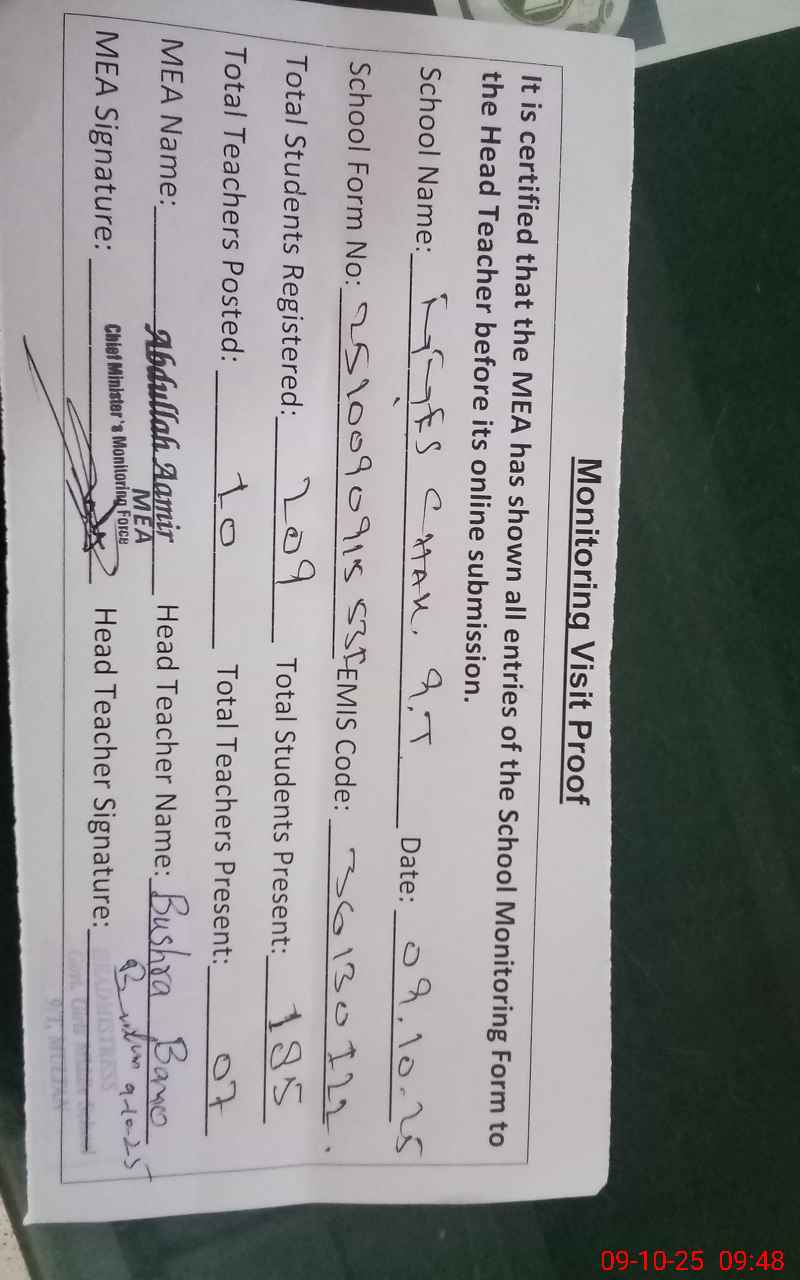 Monitoring Visit Proof
It is certified that the MEA has shown all entries of the School Monitoring Form to
the Head Teacher before its online submission.
School Name: CHAK. 9.T Date: 09.10.25
School Form No: EMIS Code: 36130122.
Total Students Registered: 209 Total Students Present: 185
Total Teachers Posted: 10 Total Teachers Present: 07
MEA Name: Abdullah Aamir Head Teacher Name: Bushra Bano
MEA
Chief Minister's Monitoring Force
MEA Signature: Head Teacher Signature:
9-10-25
HEADMISTRESS
Govt. Girls School
9T, MULTAN
09-10-25 09:48